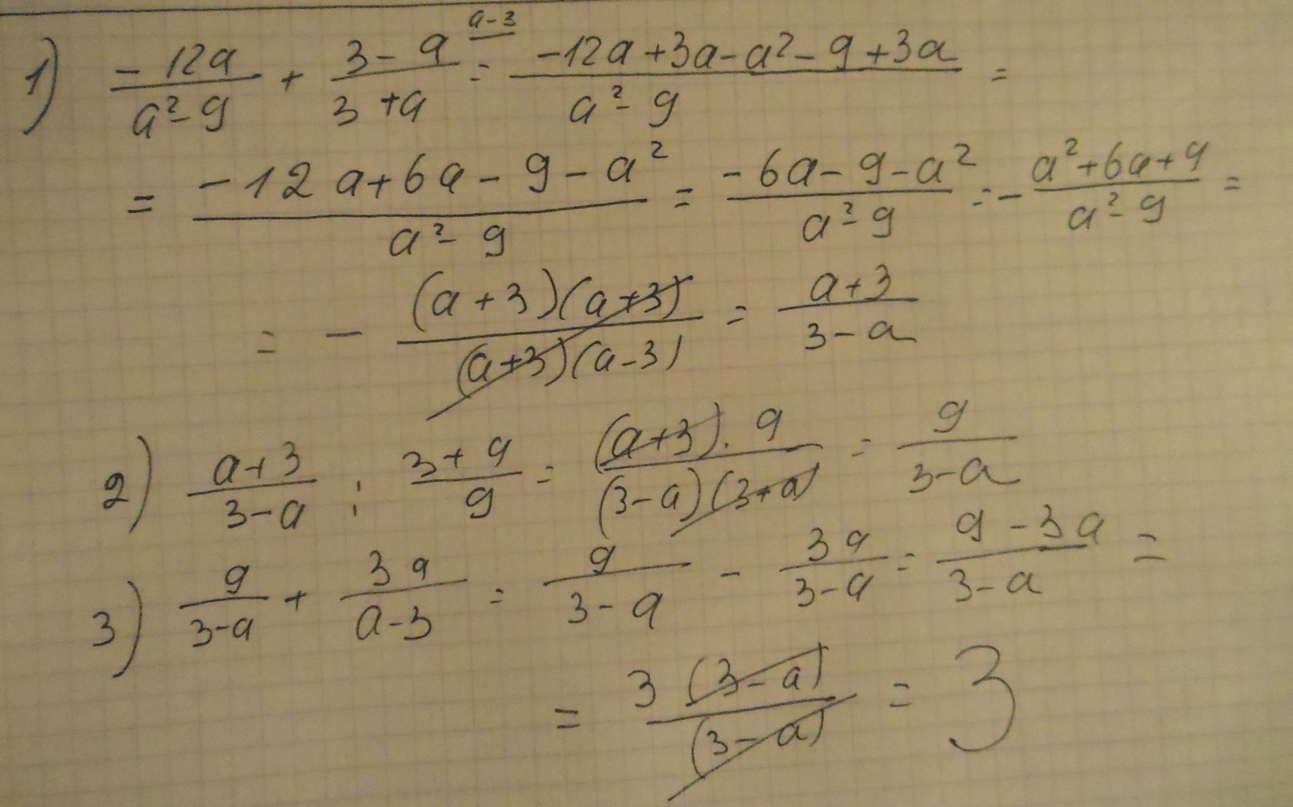 1) -12a/(a²-9) + (3-a)/(3+a) ^(a-3) = (-12a+3a-a²-9+3a)/(a²-9) =
= (-12a+6a-9-a²)/(a²-9) = (-6a-9-a²)/(a²-9) = - (a²+6a+9)/(a²-9) =
= - ((a+3)(a+3))/((a+3)(a-3)) = (a+3)/(3-a)
2) (a+3)/(3-a) : (3+a)/9 = ((a+3)·9)/((3-a)(3+a)) = 9/(3-a)
3) 9/(3-a) + 3a/(a-3) = 9/(3-a) - 3a/(3-a) = (9-3a)/(3-a) =
= 3(3-a)/(3-a) = 3